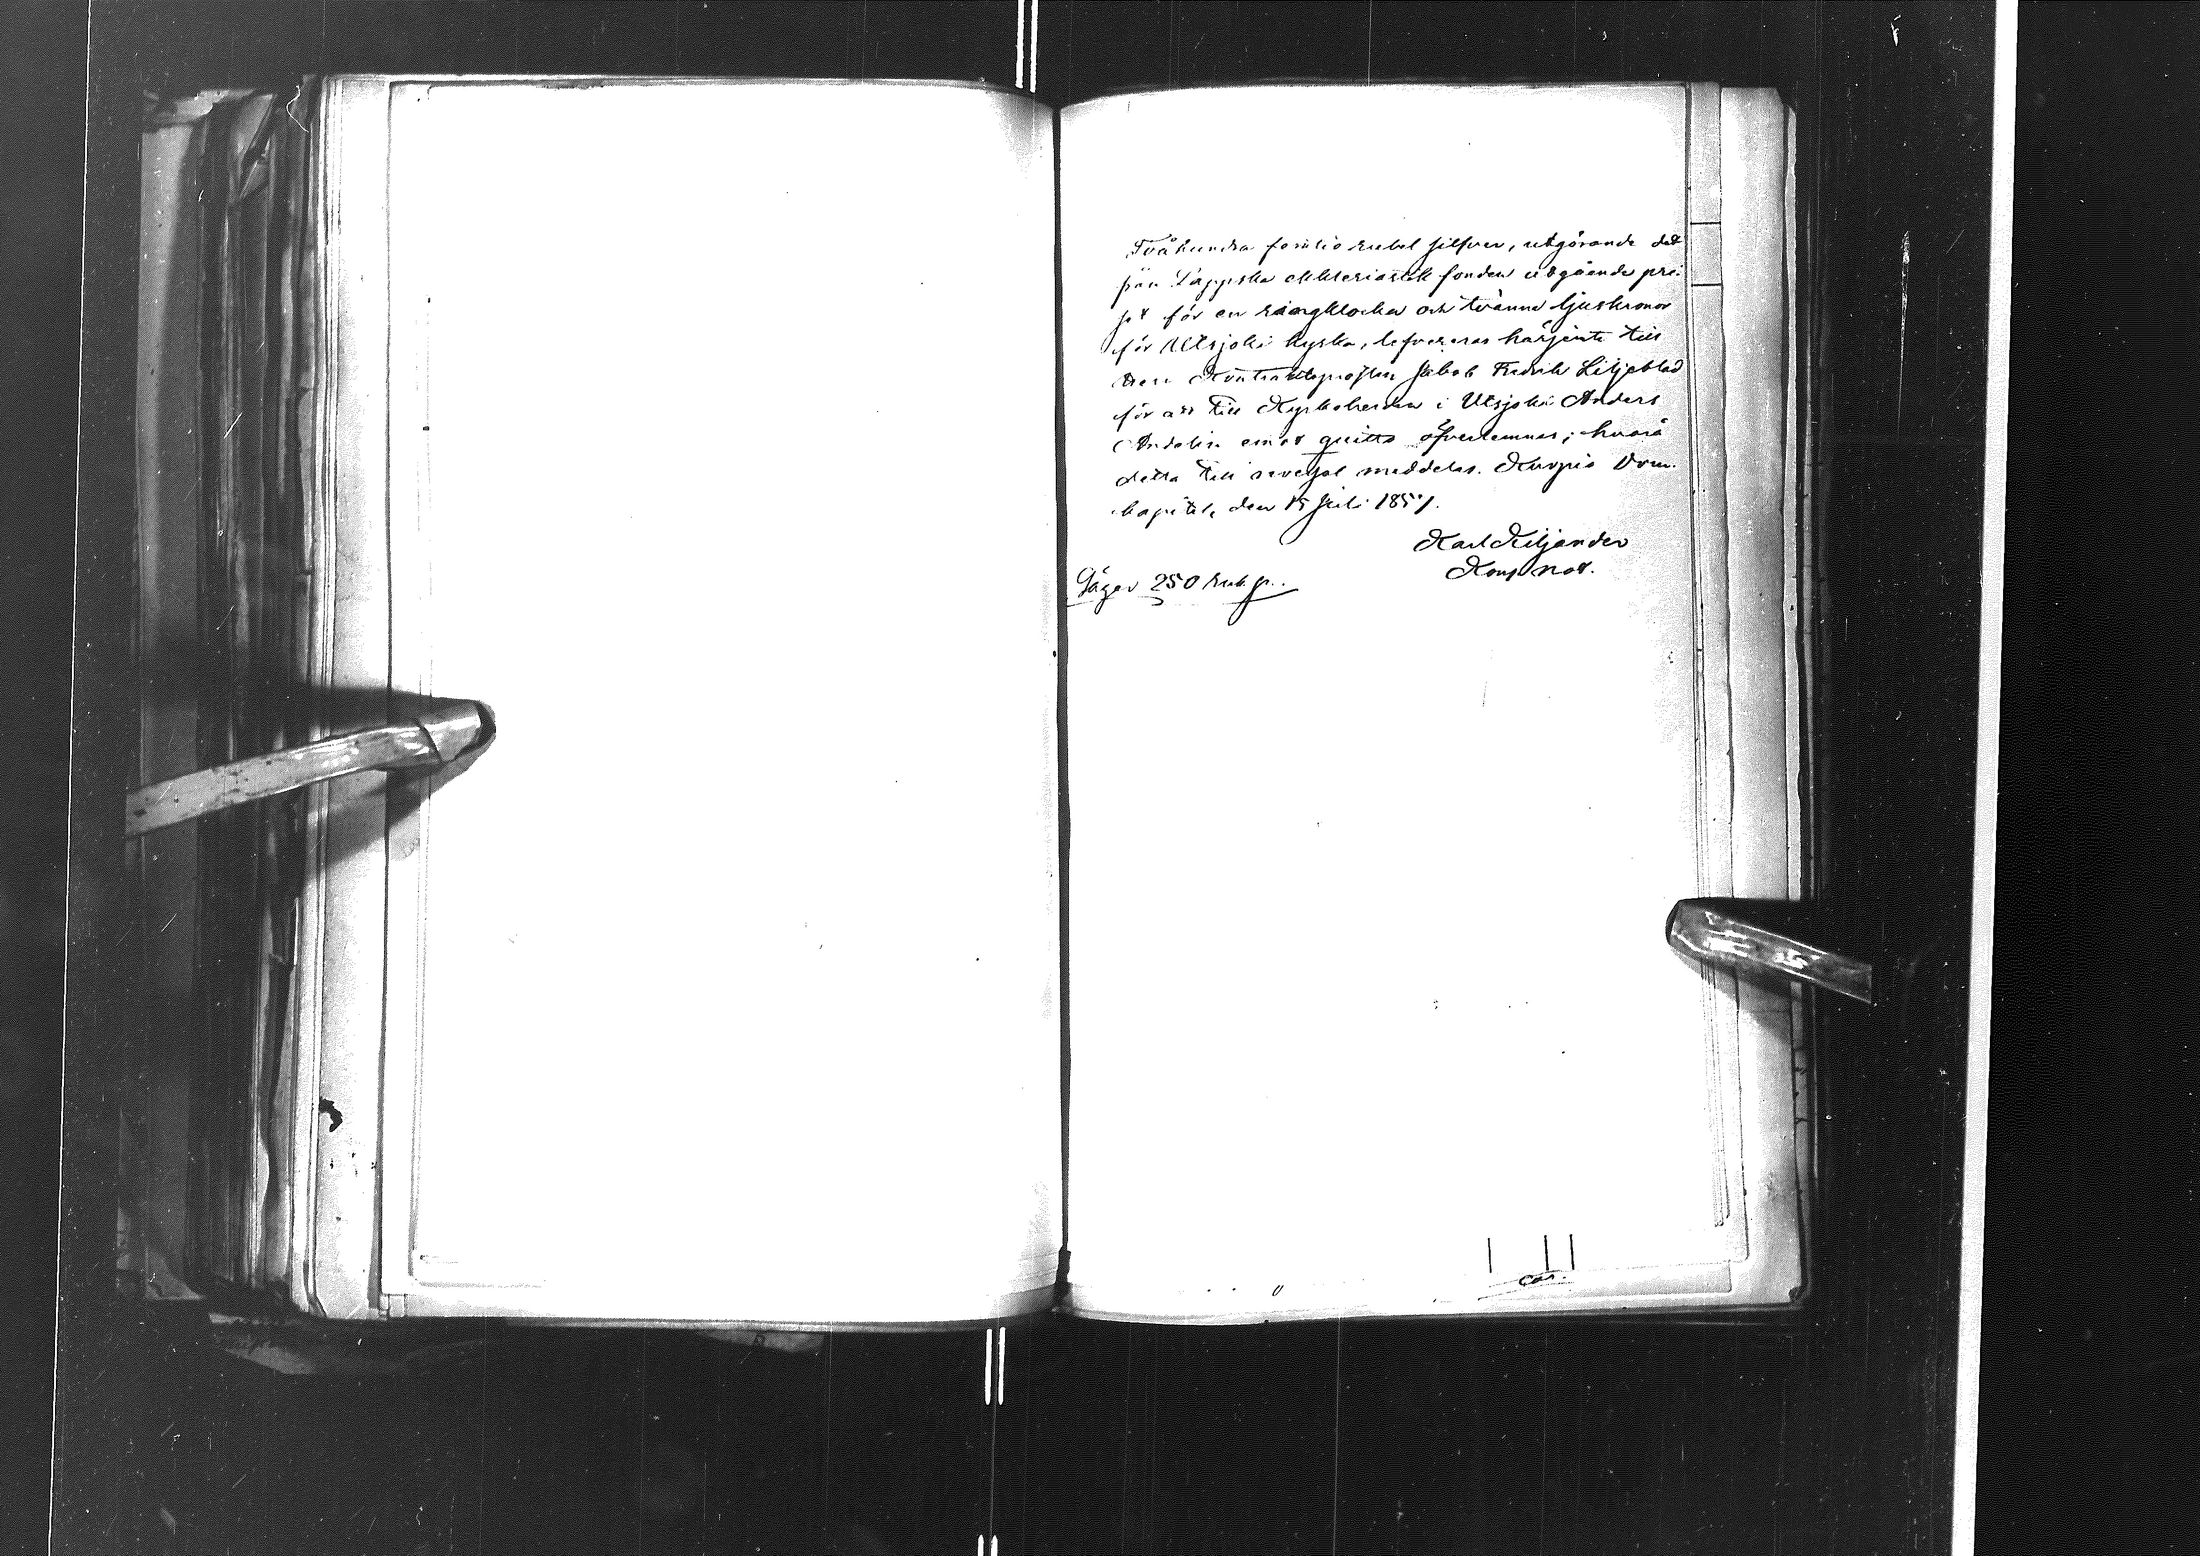 Tvåhundra femtio rubel silfver, utgörande det
från Lappska ecklesiastik fonden utgående pri-
set för en ringklocka och tvänne ljuskronor
för Utsjoki kyrka, lefvereras härjemte till
Herr Kontraktsprosten Jakob Fredrik Liljeblad
för att till Kyrkoherden i Utsjoki Anders
Andelin emot quitto öfverlemnas; hvarå
detta till reversal meddelas. Kuopio Dom-
kapitel, den 15 Juli 1857.
Karl Kiljander
Kons. not.
Säger 250 Rub. sr.